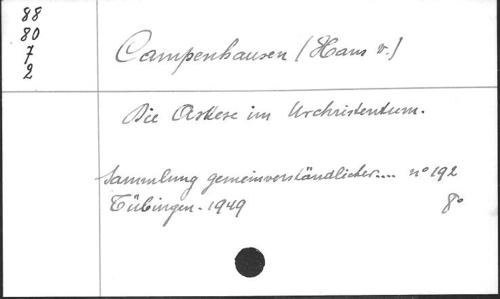 88
80
7
2
Campenhausen (Hans v.)
Die Askese im Urchristentum.
Sammlung gemeinverständlicher.... n° 192
Tübingen - 1949 8°